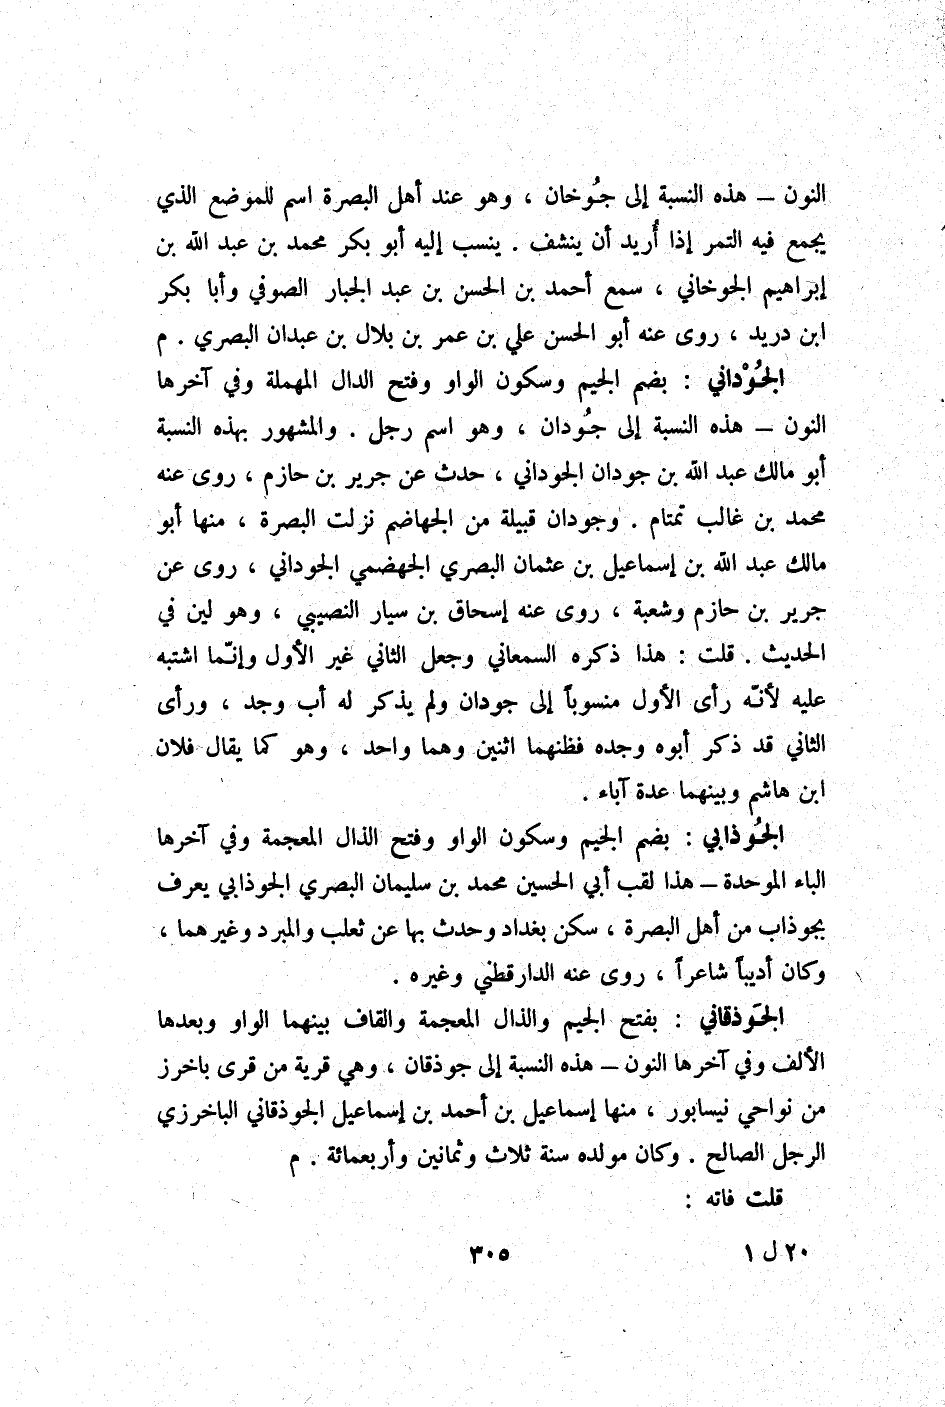 النون – هذه النسبة إلى جُوخان ، وهو عند أهل البصرة اسم للموضع الذي
يجمع فيه التمر إذا أُريد أن ينشف . ينسب إليه أبو بكر محمد بن عبد الله بن
إبراهيم الجوخاني ، سمع أحمد بن الحسن بن عبد الجبار الصوفي وأبا بكر
ابن دريد ، روى عنه أبو الحسن علي بن عمر بن بلال بن عبدان البصري . م
الجُوْداني : بضم الجيم وسكون الواو وفتح الدال المهملة وفي آخرها
النون – هذه النسبة إلى جُودان ، وهو اسم رجل . والمشهور بهذه النسبة
أبو مالك عبد الله بن جودان الجوداني ، حدث عن جرير بن حازم ، روى عنه
محمد بن غالب تمتام . وجودان قبيلة من الجهاضم نزلت البصرة ، منها أبو
مالك عبد الله بن إسماعيل بن عثمان البصري الجهضمي الجوداني ، روى عن
جرير بن حازم وشعبة ، روى عنه إسحاق بن سيار النصيبي ، وهو لين في
الحديث . قلت : هذا ذكره السمعاني وجعل الثاني غير الأول وإنّما اشتبه
عليه لأنّه رأى الأول منسوباً إلى جودان ولم يذكر له أب وجد ، ورأى
الثاني قد ذكر أبوه وجده فظنهما اثنين وهما واحد ، وهو كما يقال فلان
ابن هاشم وبينهما عدة آباء .
الجُوذابي : بضم الجيم وسكون الواو وفتح الذال المعجمة وفي آخرها
الباء الموحدة – هذا لقب أبي الحسين محمد بن سليمان البصري الجوذابي يعرف
بجوذاب من أهل البصرة ، سكن بغداد وحدث بها عن ثعلب والمبرد وغيرهما ،
وكان أديباً شاعراً ، روى عنه الدارقطني وغيره .
الجَوذقاني : بفتح الجيم والذال المعجمة والقاف بينهما الواو وبعدها
الألف وفي آخرها النون – هذه النسبة إلى جوذقان ، وهي قرية من قرى باخرز
من نواحي نيسابور ، منها إسماعيل بن أحمد بن إسماعيل الجوذقاني الباخرزي
الرجل الصالح . وكان مولده سنة ثلاث وثمانين وأربعمائة . م
قلت فاته :
٢٠ ل ١
٣٠٥